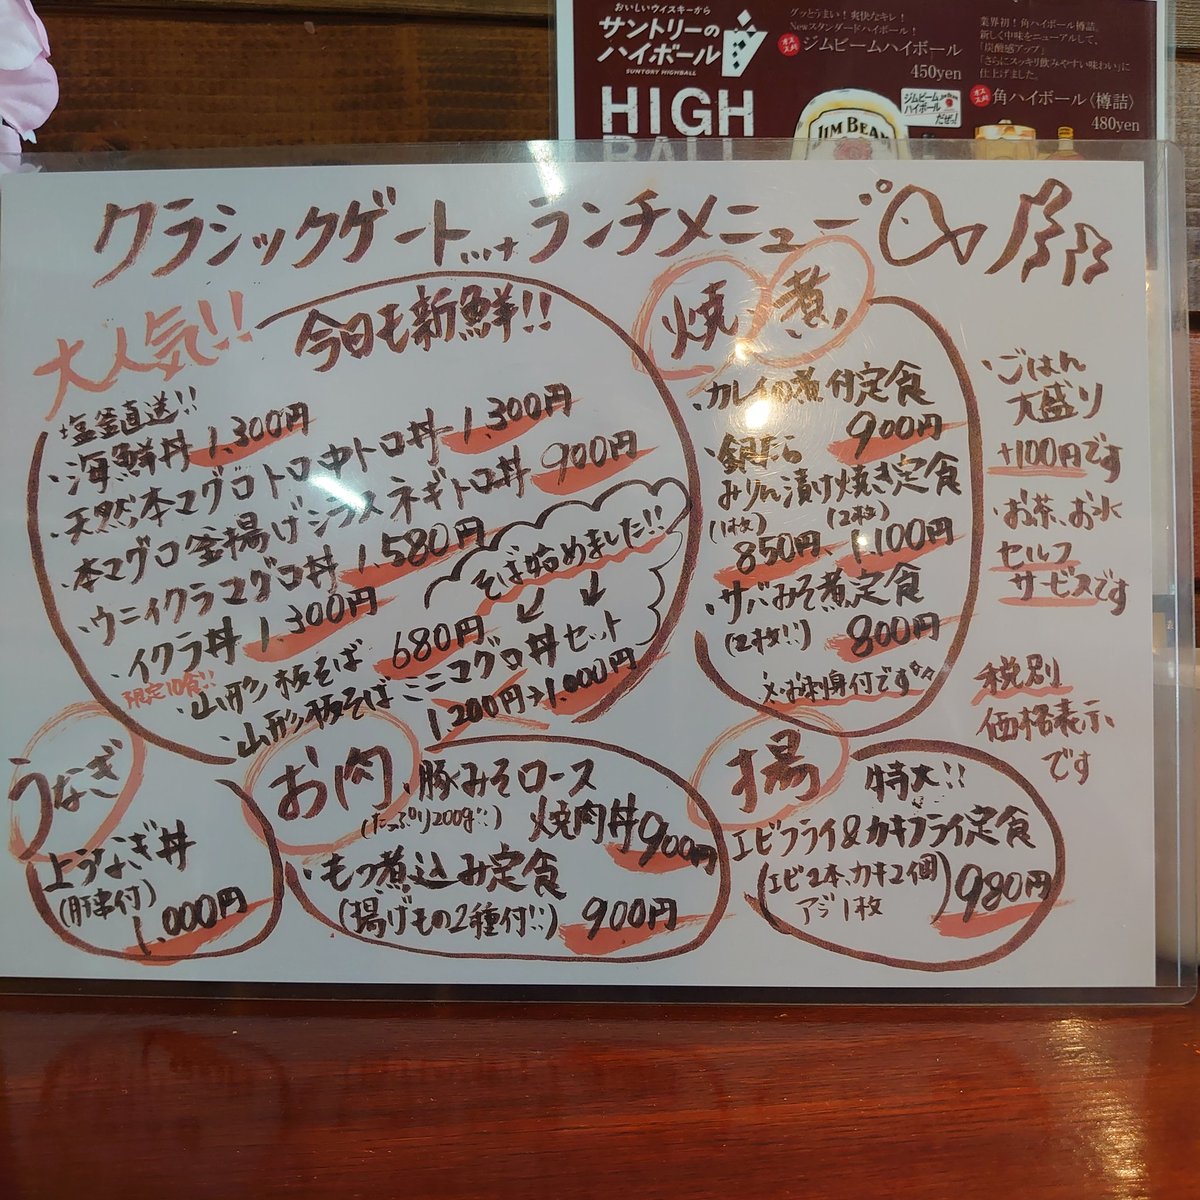 おいしいウイスキーから
サントリーの
ハイボール
SUNTORY HIGHBALL
HIGH
BALL
グッとうまい!爽快なキレ!
Newスタンダードハイボール!
オススメ
ジムビームハイボール
450yen
JIM BEAM
ジムビーム
ハイボール
だぜっ!
業界初!角ハイボール樽詰。
新しく中味をリニューアルして、
「炭酸感アップ」
「さらにスッキリ飲みやすい味わい」に
仕上げました。
オススメ
角ハイボール〈樽詰〉
480yen
クラシックゲート...ランチメニュー
大人気!!
今日も新鮮!!
塩釜直送!!
・海鮮丼 1.300円
・天然本マグロトロ中トロ丼 1.300円
・本マグロ釜揚げシラスネギトロ丼 900円
・ウニイクラマグロ丼 1.580円
・イクラ丼 1.300円
限定10食!!
そば始めました!!
・山形板そば 680円
・山形板そばミニマグロ丼セット
1.200円→1.000円
焼、煮、
・カレイの煮付定食
900円
・銀だら
みりん漬け焼き定食
(1枚) (2枚)
850円、1.100円
・サバみそ煮定食
(2枚!!) 800円
※お刺身付です
・ごはん
大盛り
+100円です
・お茶、お水
セルフ
サービスです
税別
価格表示
です
うなぎ
上うなぎ丼
(肝串付)
1.000円
お肉
・豚みそロース
(たっぷり200g!!) 焼肉丼 900円
・もつ煮込み定食
(揚げもの2種付!!) 900円
揚
特大!!
エビフライ&カキフライ定食
(エビ2本、カキ2個
アジ1枚) 980円